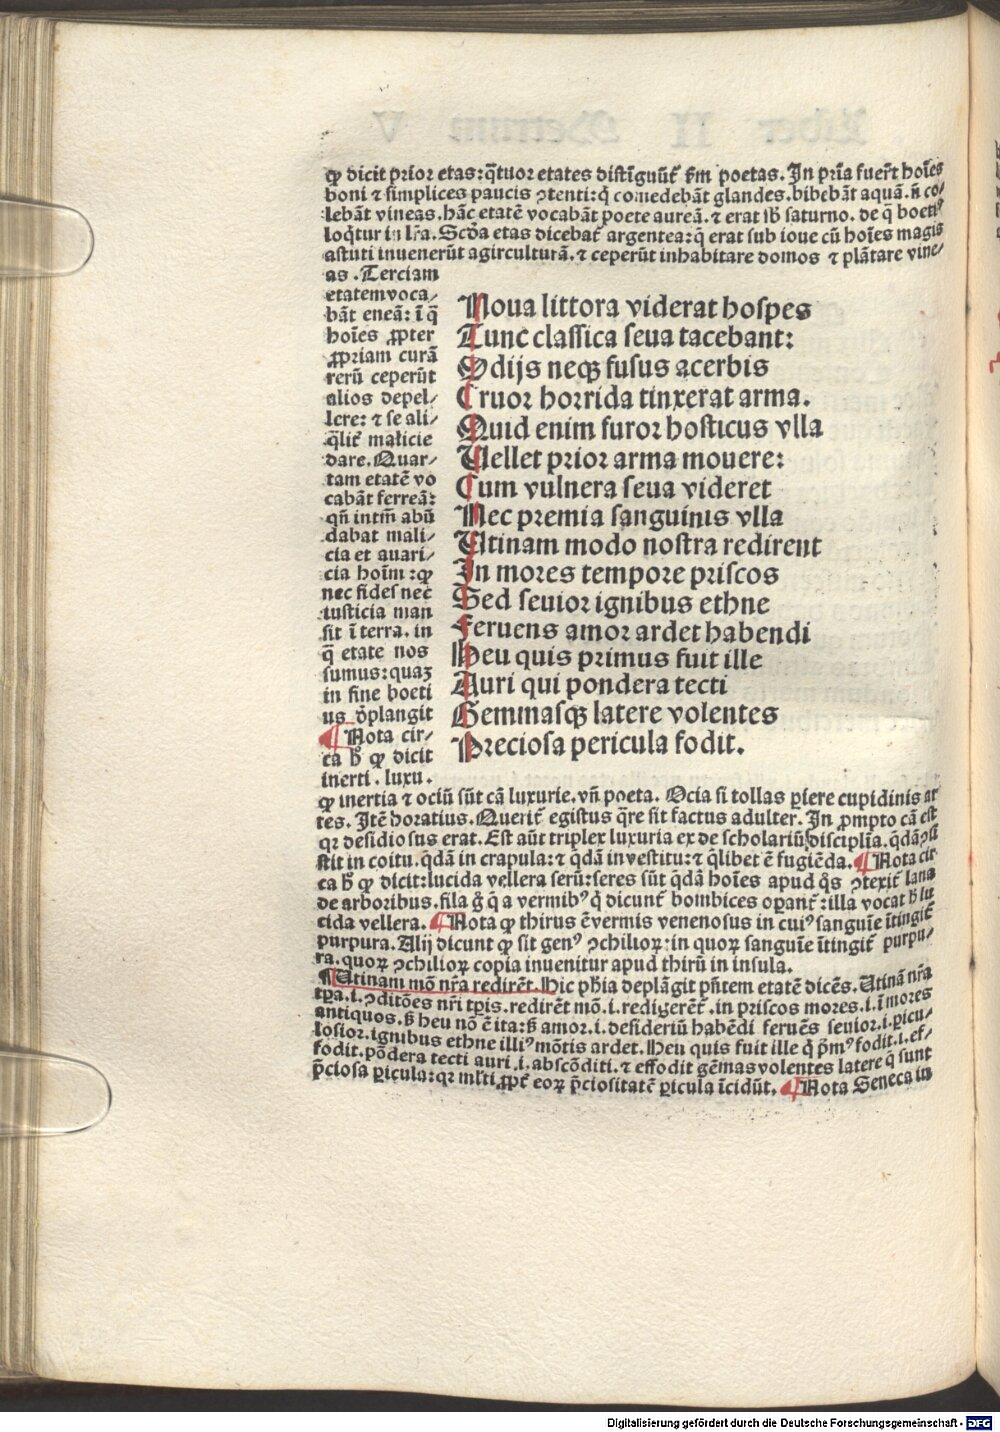 ꝙ dicit prior etas: q̃tuor etates distĩguũt᷑ ẜm poetas. In prĩa fuer̃t hoĩes
boni ⁊ simplices paucis ꝯtenti: q̇ comedebãt glandes. bibebãt aquã. ñ co/
lebãt vineas. hãc etatẽ vocabãt poete aureã. ⁊ erat sb̃ saturno. de q̃ boetiꝰ
loq̃tur in lr̃a. Scd̃a etas dicebat᷑ argentea: q̃ erat sub ioue cũ hoĩes magis
astuti inuenerũt agirculturã. ⁊ ceperũt inhabitare domos ⁊ plãtare vine/
as. Terciam
etatem voca/
bãt eneã: ĩ q̃
hoĩes ꝓpter
ꝓpriam curã
rerũ ceperũt
alios depel/
lere: ⁊ se ali/
q̃lit᷑ malicie
dare. Quar/
tam etatẽ vo
cabãt ferreã:
qñ intm̃ abũ
dabat mali/
cia et auari/
cia hoĩm: ꝙ
nec fides nec
iusticia man
sit ĩ terra. in
q̃ etate nos
sumus: quaꝫ
in fine boeti
us d̕plangit
¶ Nota cir/
ca h̕ ꝙ dicit
inerti. luxu.
Noua littora viderat hospes
Tunc classica seua tacebant:
Odijs neqꝫ fusus acerbis
Cruor horrida tinxerat arma.
Quid enim furor hosticus vlla
Vellet prior arma mouere:
Cum vulnera seua videret
Nec premia sanguinis vlla
Utinam modo nostra redirent
In mores tempore priscos
Sed seuior ignibus ethne
Feruens amor ardet habendi
Heu quis primus fuit ille
Auri qui pondera tecti
Gemmasqꝫ latere volentes
Preciosa pericula fodit.
ꝙ inertia ⁊ ociũ sũt cã luxurie. vñ poeta. Ocia si tollas ꝑiere cupidinis ar
tes. Itẽ horatius. Querit᷑ egistus q̃re sit factus adulter. In ꝓmpto cã est
qꝛ desidiosus erat. Est aũt triplex luxuria ex de scholariũ disciplĩa. q̃dã ꝯsi
stit in coitu. q̃dã in crapula: ⁊ q̃dã in vestitu: ⁊ q̃libet ẽ fugiẽda. ¶ Nota cir
ca h̕ ꝙ dicit: lucida vellera serũ: seres sũt q̃dã hoĩes apud q̃s ꝯtexit᷑ lana
de arboribus. fila g̃ q̃ a vermibꝰ q̇ dicunt᷑ bombices oꝑant᷑: illa vocat h̕ lu
cida vellera. ¶ Nota ꝙ thirus ẽ vermis venenosus in cuiꝰ sanguĩe ĩtingit᷑
purpura. Alij dicunt ꝙ sit genꝰ ꝯchilioꝝ: in quoꝝ sanguĩe ĩtingit᷑ purpu/
ra. quoꝝ ꝯchilioꝝ copia inuenitur apud thirũ in insula.
¶ Utinam mõ nr̃a redirẽt. Hic ph̃ia deplãgit pñtem etatẽ dicẽs. Utinã nr̃a
tꝑa. i. ꝯditões nr̃i tꝑis. redirẽt mõ. i. redigerẽt᷑. in priscos mores. i. ĩ mores
antiquos. s̕ heu nõ ẽ ita: s̕ amor. i. desideriũ habẽdi feruẽs seuior. i. ꝑicu/
losior. ignibus ethne illiꝰ mõtis ardet. Heu quis fuit ille q̇ p̃mꝰ fodit. i. ef/
fodit. põdera tecti auri. i. abscõditi. ⁊ effodit gẽmas volentes latere q̃ sunt
p̃ciosa ꝑicula: qꝛ ml̕ti ꝓpt᷑ eoꝝ p̃ciositatẽ ꝑicula ĩcidũt. ¶ Nota Seneca in
Digitalisierung gefördert durch die Deutsche Forschungsgemeinschaft - DFG